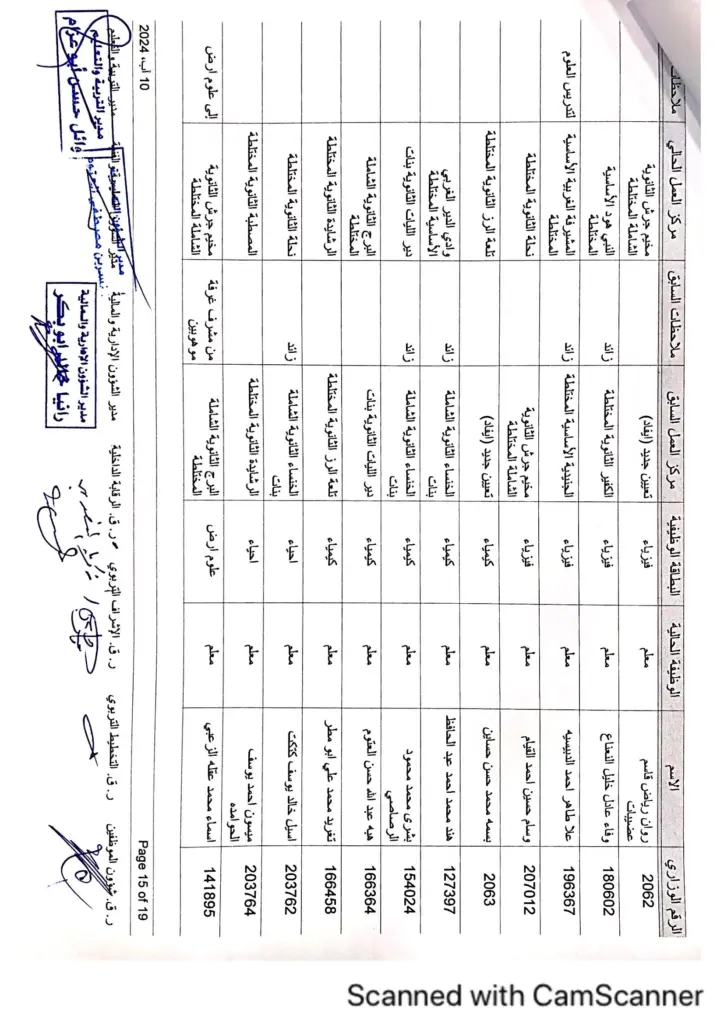 الرقم الوزاري الاسم الوظيفة الحالية البطاقة الوظيفية مركز العمل السابق ملاحظات السابق مركز العمل الحالي ملاحظات
2062 روان رياض قاسم عضيبات معلم فيزياء تعيين جديد (ايفاد) مخيم جرش الثانوية الشاملة المختلطة
180602 وفاء عادل خليل النعناع معلم فيزياء الكفير الثانوية المختلطة زائد النبي هود الأساسية المختلطة
196367 علا طاهر احمد الدبيسيه معلم فيزياء الجنيدية الأساسية المختلطة زائد المشيرفة الغربية الأساسية المختلطة لتدريس العلوم
207012 وسام حسين احمد القيام معلم فيزياء مخيم جرش الثانوية الشاملة المختلطة نحلة الثانوية المختلطة
2063 بسمه محمد حسن حساين معلم كيمياء تعيين جديد (ايفاد) تلعة الرز الثانوية المختلطة
127397 هند محمد احمد عبد الحافظ معلم كيمياء الخنساء الثانوية الشاملة بنات زائد وادي الدير الغربي الأساسية المختلطة
154024 بشرى محمد محمود الرصاصي معلم كيمياء الخنساء الثانوية الشاملة بنات زائد دير الليات الثانوية بنات
166364 هبه عبد الله حسن العتوم معلم كيمياء دير الليات الثانوية بنات البرج الثانوية الشاملة المختلطة
166458 تغريد محمد علي ابو مطر معلم كيمياء تلعة الرز الثانوية المختلطة الرشايدة الثانوية المختلطة
203762 اسيل خالد يوسف كتكت معلم احياء الخنساء الثانوية الشاملة بنات زائد نحلة الثانوية المختلطة
203764 ميسون احمد يوسف الحوامده معلم احياء الرشايدة الثانوية المختلطة المصطبة الثانوية المختلطة
141895 اسماء محمد عقله الزعبي معلم علوم ارض البرج الثانوية الشاملة المختلطة من مشرف غرفة موهوبين مخيم جرش الثانوية الشاملة المختلطة الى علوم ارض
Page 15 of 19
10 آب، 2024
ر. ق. شؤون الموظفين ر. ق. التخطيط التربوي ر. ق. الإشراف التربوي ر. ق. الرقابة الداخلية مدير الشؤون الإدارية والمالية مدير الشؤون التعليمية والفنية مدير التربية والتعليم
مدير الشؤون الإدارية والمالية
رانيا خالد ابو بكر
مدير التربية والتعليم
وائل حسن أبو عزام
Scanned with CamScanner